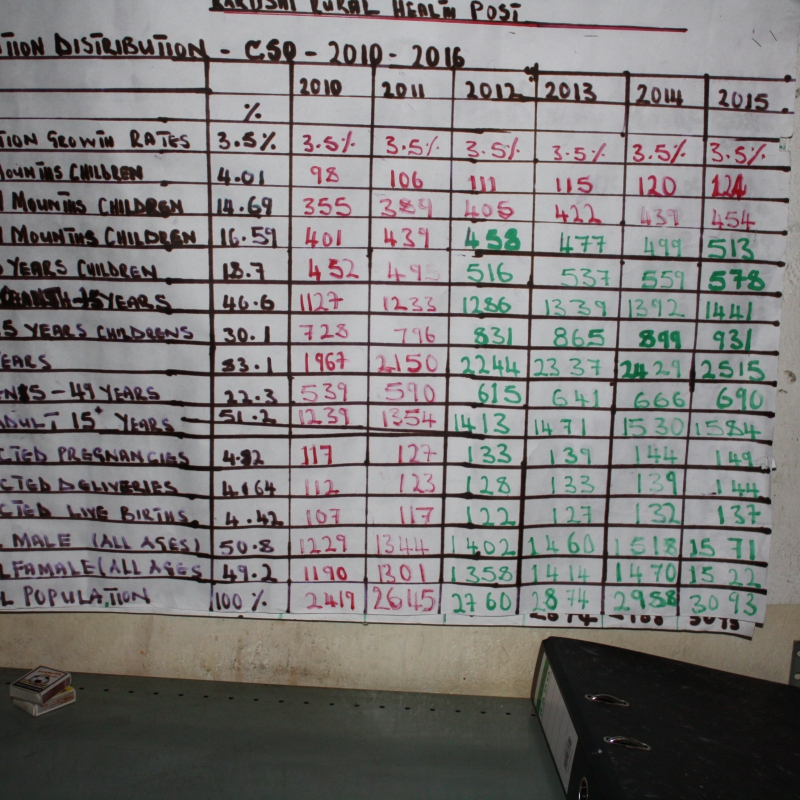 RURAL HEALTH POST
TION DISTRIBUTION - CSO - 2010 - 2016
2010 2011 2012 2013 2014 2015
%
TION GROWTH RATES 3.5% 3.5% 3.5% 3.5% 3.5% 3.5% 3.5%
MOUNTHS CHILDREN 4.01 98 106 111 115 120 124
MOUNTHS CHILDREN 14.69 355 389 405 422 439 454
MOUNTHS CHILDREN 16.59 401 439 458 477 499 513
YEARS CHILDREN 18.7 452 495 516 537 559 578
YEARS 46.6 1127 1233 1286 1339 1392 1441
5 YEARS CHILDRENS 30.1 728 796 831 865 899 931
EARS 83.1 1967 2150 2244 2337 2429 2515
EN15 - 49 YEARS 22.3 539 590 615 641 666 690
ADULT 15+ YEARS 51.2 1239 1354 1413 1471 1530 1584
CTED PREGNANCIES 4.92 117 127 133 139 144 149
CTED DELIVERIES 4.64 112 123 128 133 139 144
CTED LIVE BIRTHS 4.42 107 117 122 127 132 137
L MALE (ALL AGES) 50.8 1229 1344 1402 1460 1518 1571
L FAMALE (ALL AGES 49.2 1190 1301 1358 1414 1470 1522
L POPULATION 100% 2419 2645 2760 2874 2988 3093